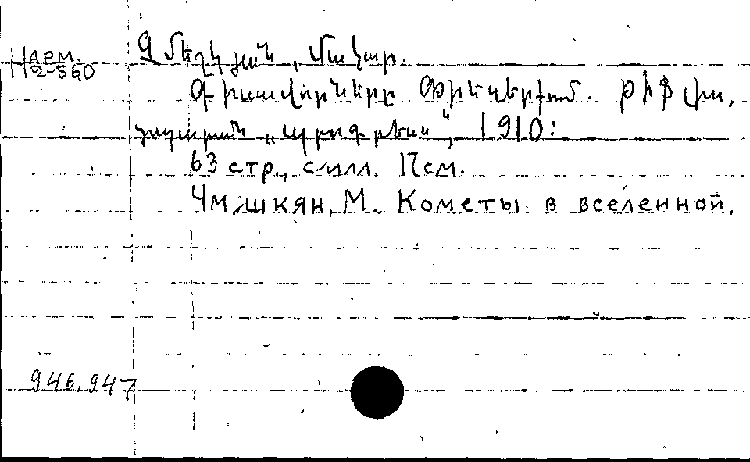 Чарм.
12-560
Չմշկյան, Մակար.
Գիսավորները տիեզերքում. Թիֆլիս,
տպարան „Պրոգրես“, 1910:
63 стр., с илл. 17 см.
Чмшкян, М. Кометы в вселенной.
946.947